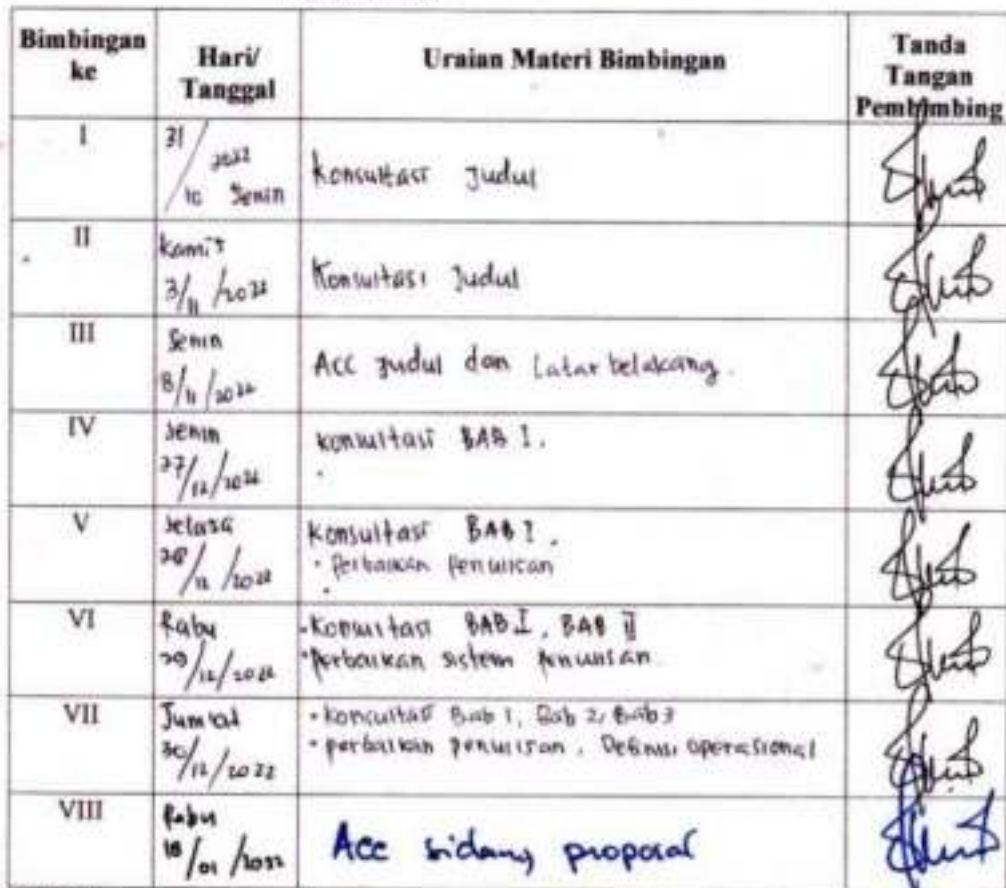 Bimbingan ke
Hari/ Tanggal
Uraian Materi Bimbingan
Tanda Tangan Pembimbing
I
31/10 2022 Senin
Konsultasi Judul
II
Kamis 3/11/2022
Konsultasi Judul
III
Senin 8/11/2022
Acc Judul dan Latar belakang.
IV
Senin 27/12/2022
konsultasi BAB I.
V
Selasa 28/12/2022
Konsultasi BAB I.
• Perbaikan Penulisan
VI
Rabu 29/12/2022
• Konsultasi BAB I, BAB II
• Perbaikan sistem penulisan
VII
Jumat 30/12/2022
• Konsultasi Bab 1, Bab 2, Bab 3
• perbaikan penulisan, Definisi operasional
VIII
Rabu 18/01/
Acc sidang proposal